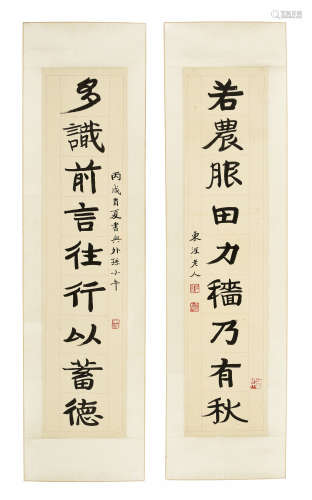 若農服田力穡乃有秋
東淫老人
多識前言往行以蓄德
丙戌首夏書與外孫小年